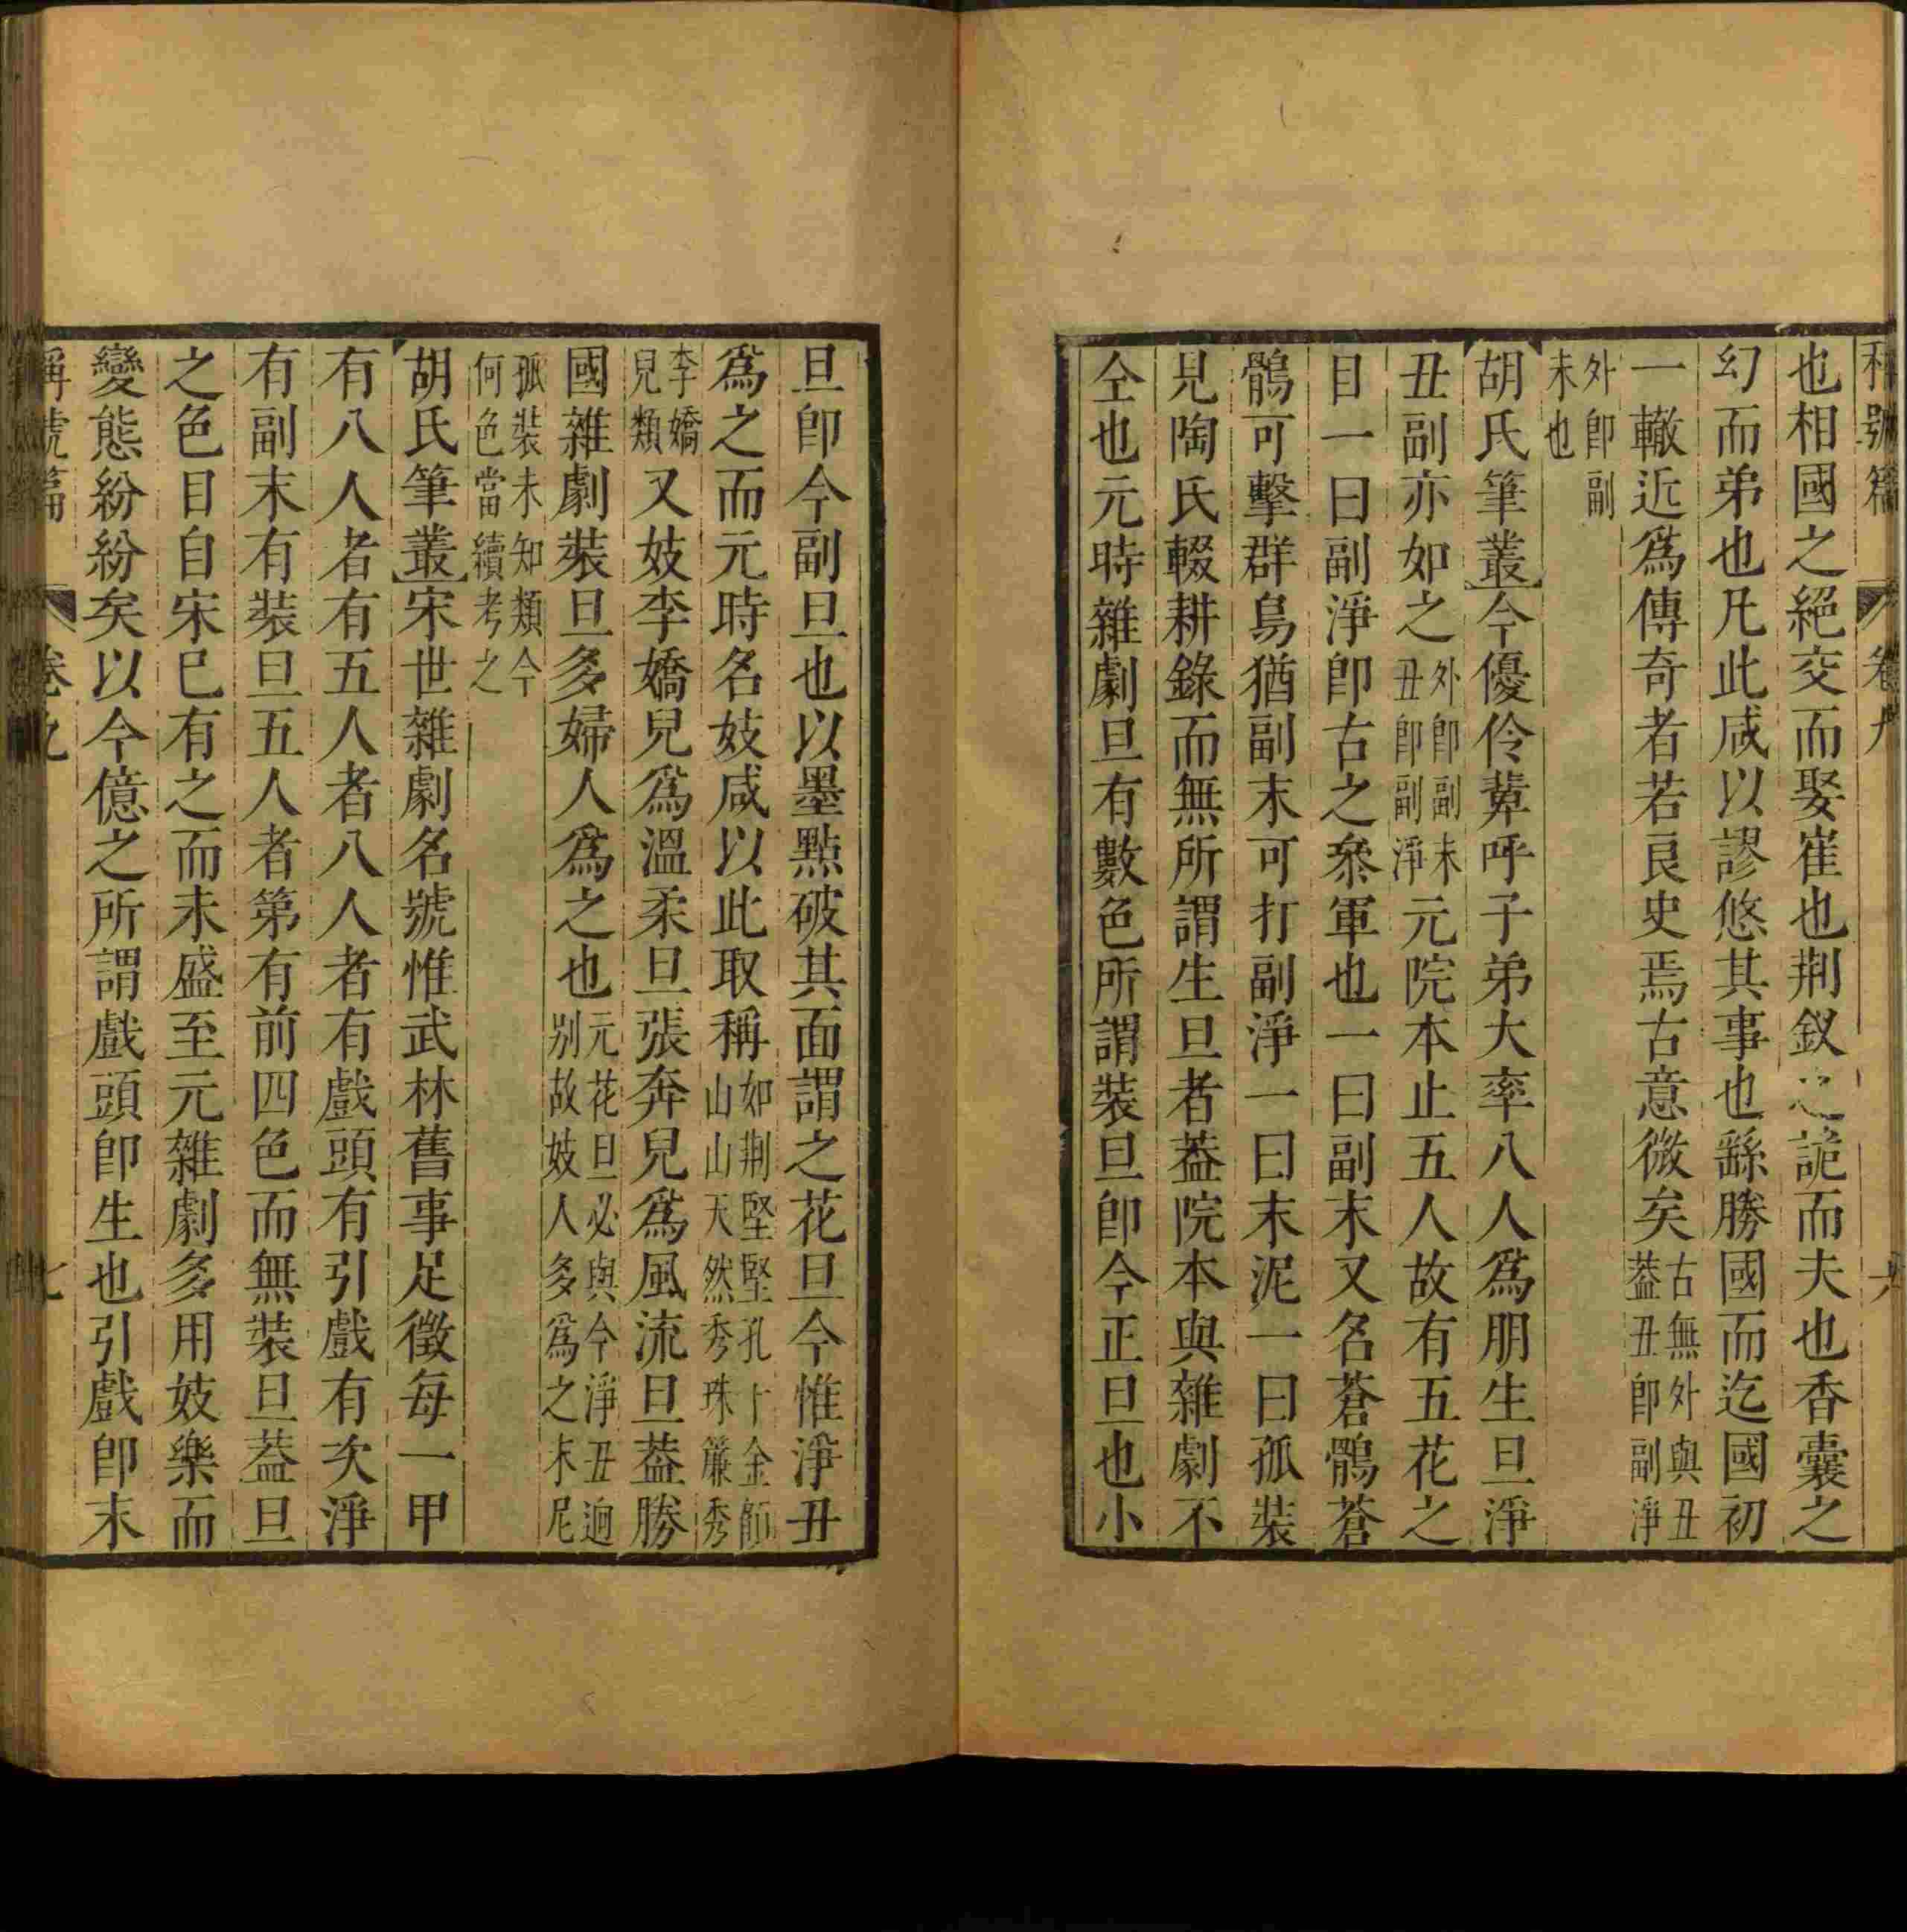 稱號篇 卷九 六
也相國之絕交而娶崔也荆釵之詭而夫也香囊之
幻而弟也凡此咸以謬悠其事也繇勝國而迄國初
一轍近爲傳奇者若良史焉古意微矣古無外與丑蓋丑卽副淨
外卽副末也
胡氏筆叢今優伶輩呼子弟大率八人爲朋生旦淨
丑副亦如之外卽副末丑卽副淨元院本止五人故有五花之
目一曰副淨卽古之叅軍也一曰副末又名蒼鶻蒼
鶻可擊群鳥猶副末可打副淨一曰末泥一曰孤裝
見陶氏輟耕錄而無所謂生旦者蓋院本與雜劇不
仝也元時雜劇旦有數色所謂裝旦卽今正旦也小
旦卽今副旦也以墨點破其面謂之花旦今惟淨丑
爲之而元時名妓咸以此取稱如荆堅堅孔卜金師山山天然秀珠簾秀
李嬌兒類又妓李嬌兒爲溫柔旦張奔兒爲風流旦蓋勝
國雜劇裝旦多婦人爲之也元花旦必與今淨丑迥别故妓人多爲之末尼
孤裝未知類今何色當續考之
胡氏筆叢宋世雜劇名號惟武林舊事足徵每一甲
有八人者有五人者八人者有戲頭有引戲有次淨
有副末有裝旦五人者第有前四色而無裝旦蓋旦
之色目自宋已有之而未盛至元雜劇多用妓樂而
變態紛紛矣以今億之所謂戲頭卽生也引戲卽末
稱號篇 卷九 七